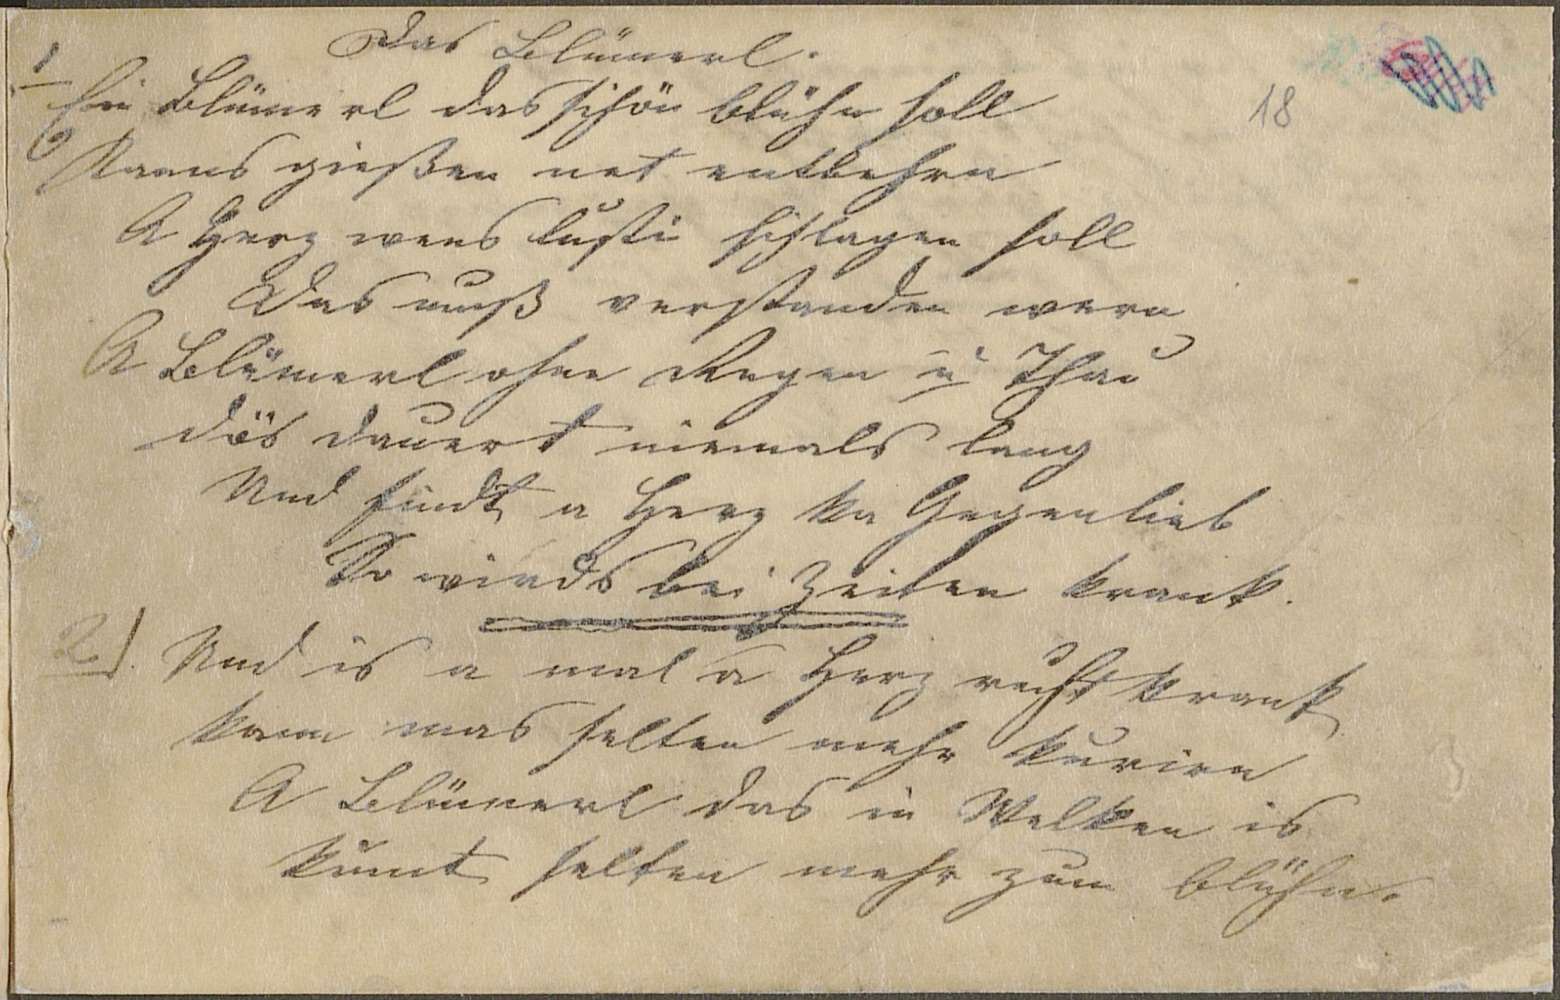 Das Blümerl.
1
Ein Blümerl das schön blühn soll
Kanns gießen net entbehrn
A Herz wens lusti schlagen soll
Das muß verstanden wern
A Blümerl ohne Regen u Thau
dös dauert niemals lang
Und findt a Herz ka Gegenlieb
So wirds bei Zeiten krank.
2) Und is a mal a Herz recht krank
kann mas selten mehr kurirn
A Blümerl das in Welken is
kümt selten mehr zum blühn.
18